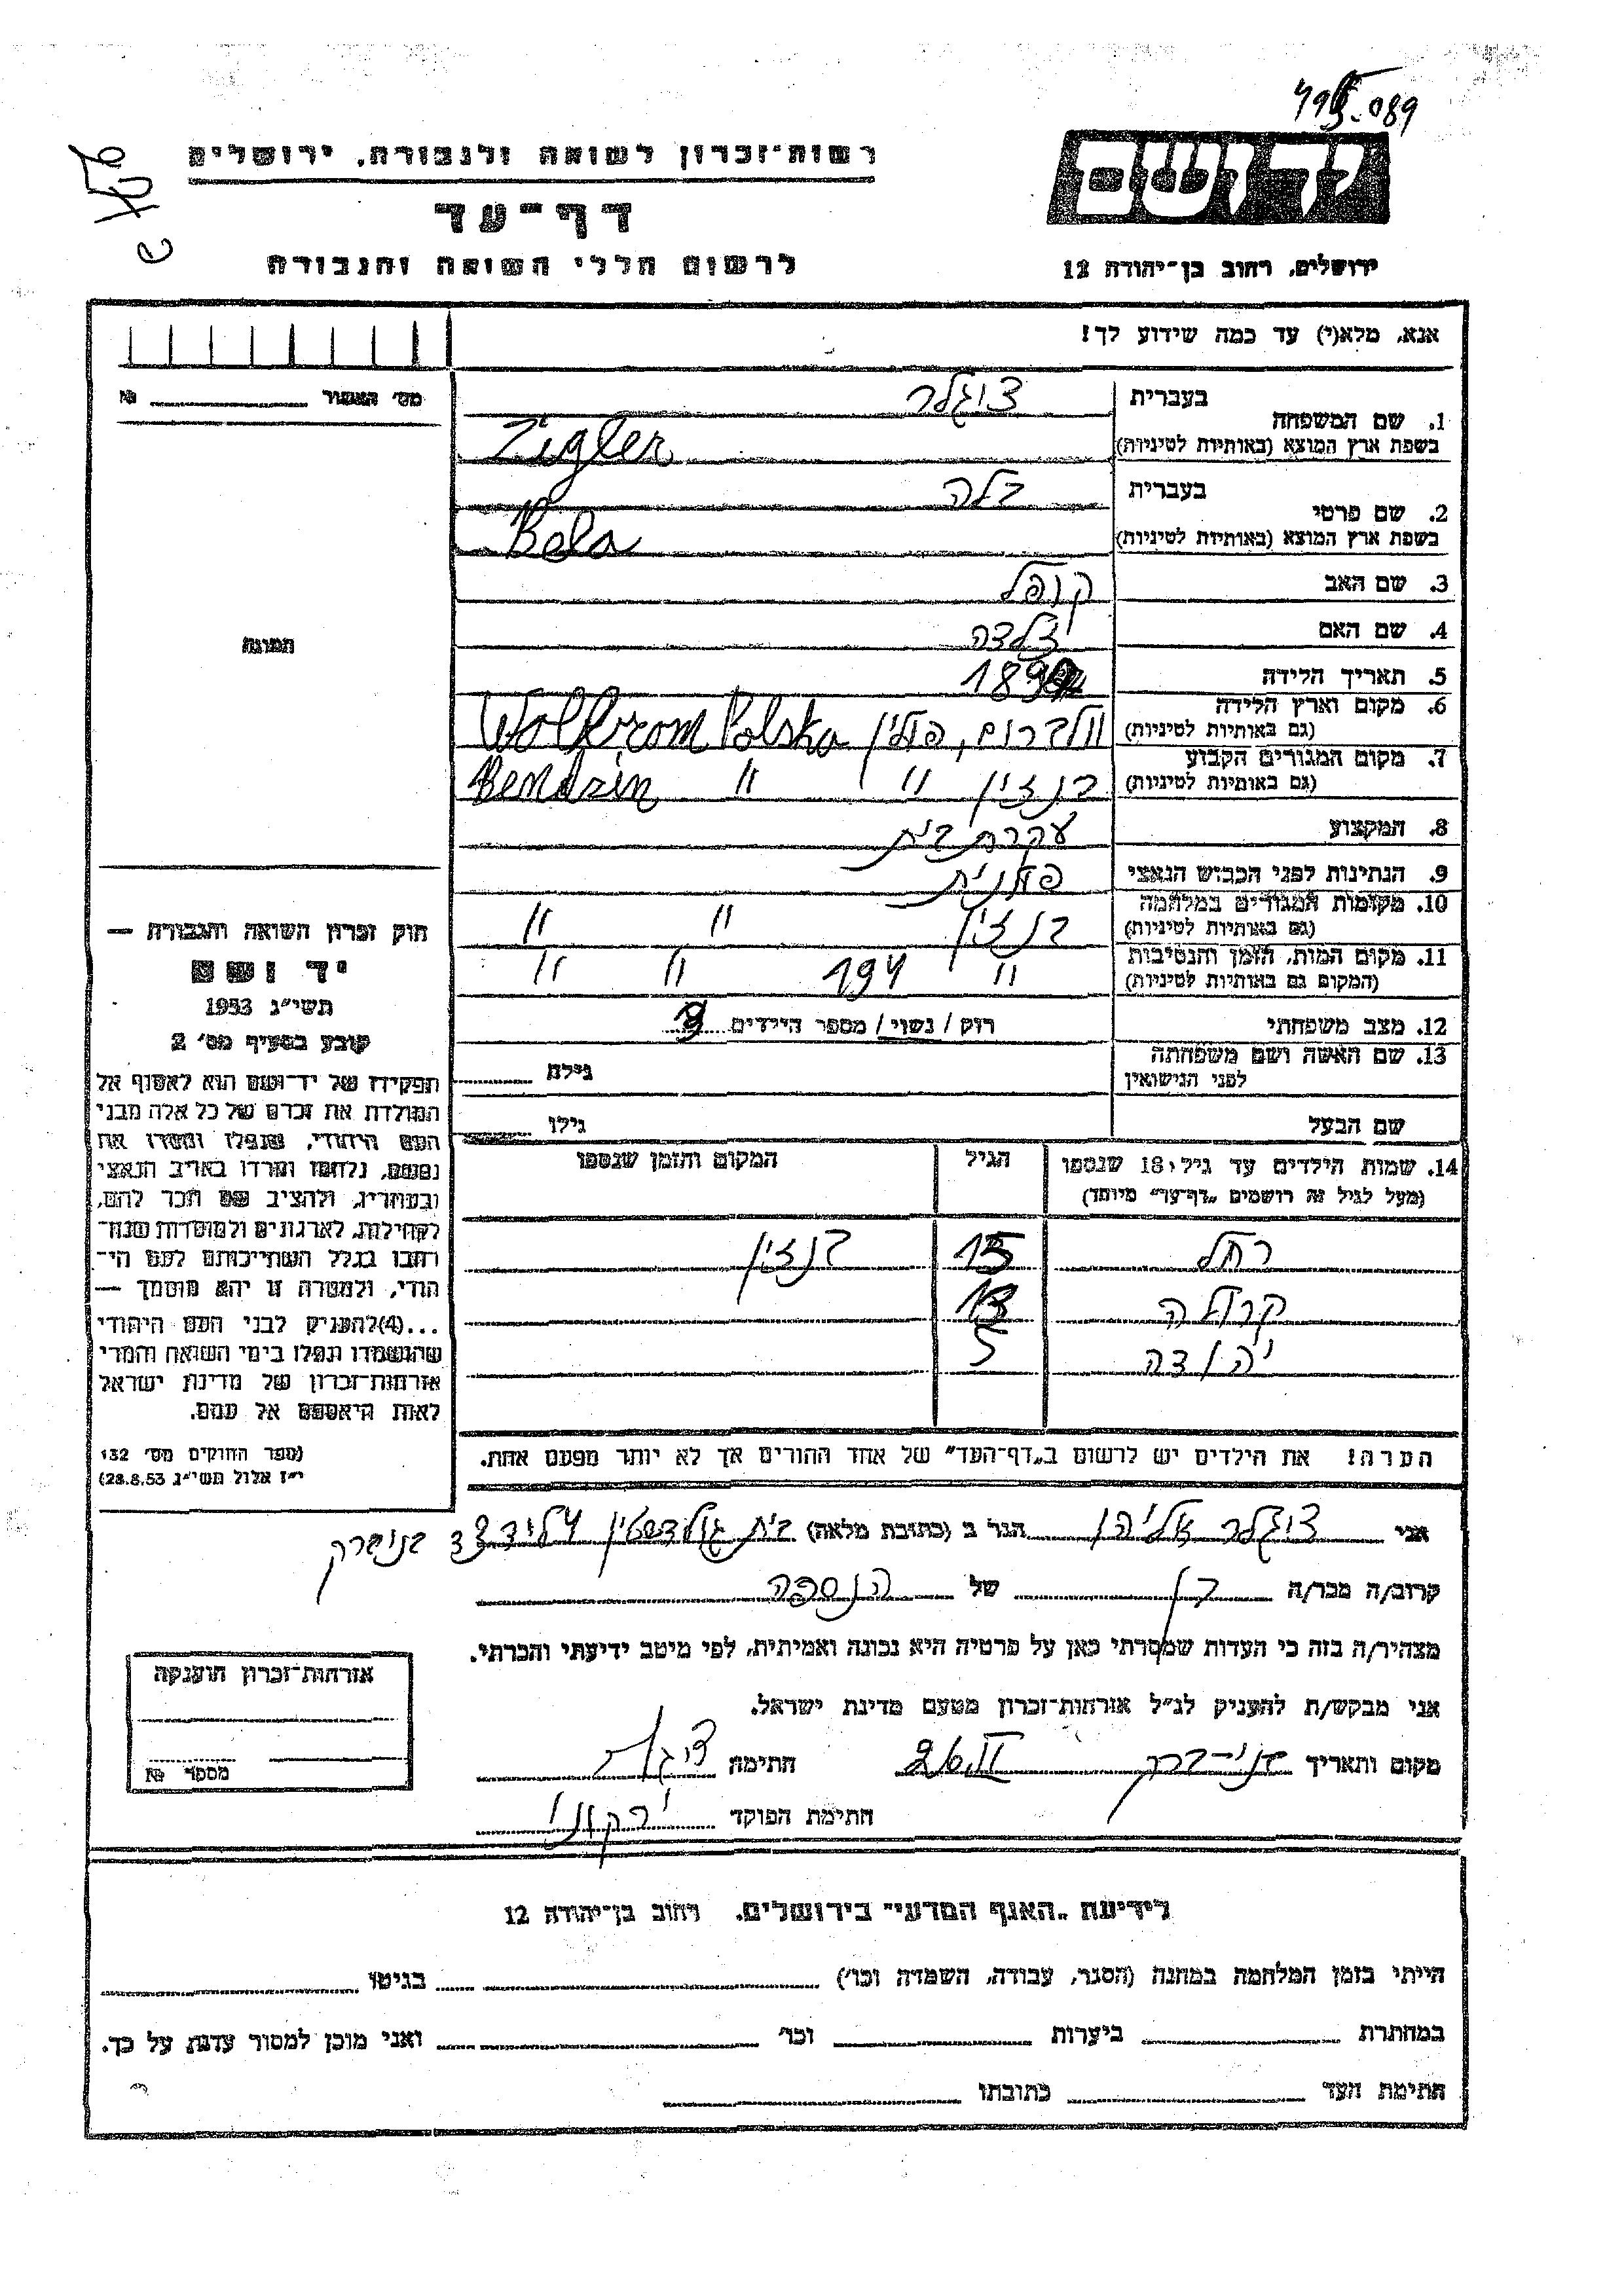 רשות-זכרון לשואה ולגבורה, ירושלים
דף-עד
לרשום חללי השואה והגבורה
יד ושם
ירושלים, רחוב בן-יהודה 12
אנא, מלא(י) עד כמה שידוע לך!
מס׳ האשור № 
תמונה
בעברית ציגלר
1. שם המשפחה
בשפת ארץ המוצא (באותיות לטיניות) Zigler
בעברית בלה
2. שם פרטי
בשפת ארץ המוצא (באותיות לטיניות) Bela
3. שם האב קופל
4. שם האם
5. תאריך הלידה
6. מקום וארץ הלידה
(גם באותיות לטיניות) וולברום, פולין Wolbrom Polska
7. מקום המגורים הקבוע
(גם באותיות לטיניות) בנדזין " Bendzin "
8. המקצוע עקרת בית
9. הנתינות לפני הכבוש הנאצי פולנית
10. מקומות המגורים במלחמה
(גם באותיות לטיניות) בנדזין " "
11. מקום המות, הזמן והנסיבות
(המקום גם באותיות לטיניות) " 194 " "
12. מצב משפחתי רווק / נשוי / מספר הילדים
13. שם האשה ושם משפחתה
לפני הנישואין גילה
שם הבעל גילו
14. שמות הילדים עד גיל 18 שנספו הגיל המקום והזמן שנספו
(מעל לגיל זה רושמים „דף-עד" מיוחד)
רחל 15 בנדזין
קרולה
יהודה 5
הערה! את הילדים יש לרשום ב„דף-העד" של אחד ההורים אך לא יותר מפעם אחת.
חוק זכרון השואה והגבורה —
יד ושם
תשי״ג 1953
קובע בסעיף מס׳ 2
תפקידו של יד-ושם הוא לאסוף אל
המולדת את זכרם של כל אלה מבני
העם היהודי, שנפלו ומסרו את
נפשם, נלחמו ומרדו באויב הנאצי
ובעוזריו, ולהציב שם וזכר להם,
לקהילות, לארגונים ולמוסדות שנח-
רבו בגלל השתייכותם לעם הי-
הודי, ולמטרה זו יהא מוסמך —
...(4)להעניק לבני העם היהודי
שהושמדו ונפלו בימי השואה והמרי
אזרחות-זכרון של מדינת ישראל
לאות היאספם אל עמם.
(ספר החוקים מס׳ 132
י״ז אלול תשי״ג 28.8.53)
אני ציגלר אליהו הגר ב (כתובת מלאה) בית גולדשטין בני ברק
קרוב/ה מכר/ה בן של הנספה
מצהיר/ה בזה כי העדות שמסרתי כאן על פרטיה היא נכונה ואמיתית, לפי מיטב ידיעתי והכרתי.
אני מבקש/ת להעניק לנ״ל אזרחות-זכרון מטעם מדינת ישראל.
מקום ותאריך בני-ברק חתימה
חתימת הפוקד
אזרחות-זכרון הוענקה
מספר №
לידיעת „האגף המדעי" בירושלים, רחוב בן-יהודה 12
הייתי בזמן המלחמה במחנה (הסגר, עבודה, השמדה וכו׳) בגיטו
במחתרת ביערות וכו׳ ואני מוכן למסור עדות על כך.
חתימת העד כתובתו